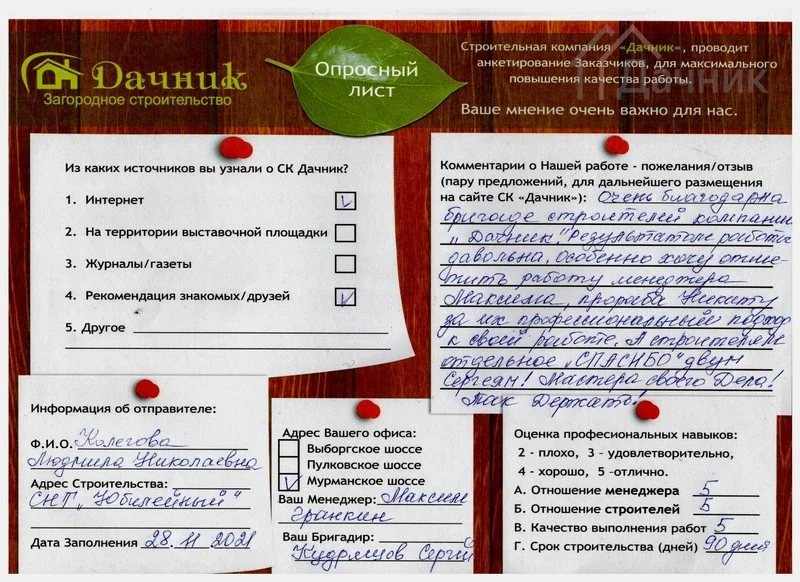 Дачник
Загородное строительство
Опросный
лист
Строительная компания «Дачник», проводит
анкетирование Заказчиков, для максимального
повышения качества работы.
Ваше мнение очень важно для нас.
Дачник
Из каких источников вы узнали о СК Дачник?
1. Интернет
2. На территории выставочной площадки
3. Журналы/газеты
4. Рекомендация знакомых/друзей
5. Другое
Комментарии о Нашей работе - пожелания/отзыв
(пару предложений, для дальнейшего размещения
на сайте СК «Дачник»): Очень благодарна
бригаде строителей компании
„Дачник". Результатом работы
давольна, особенно хочу отме-
тить работу менеджера
Максима, прораба Никиту
за их профессиональный подход
к своей работе. А строителям
отдельное „СПАСИБО" двум
Сергеям! Мастера своего Дела!
Так Держать!
Информация об отправителе:
Ф.И.О. Колегова
Людмила Николаевна
Адрес Строительства:
СНТ „Юбилейный"
Дата Заполнения 28.11.2021
Адрес Вашего офиса:
Выборгское шоссе
Пулковское шоссе
Мурманское шоссе
Ваш Менеджер: Максим
Гранкин
Ваш Бригадир:
Кудрявцов Сергей
Оценка професиональных навыков:
2 - плохо, 3 - удовлетворительно,
4 - хорошо, 5 -отлично.
А. Отношение менеджера 5
Б. Отношение строителей 5
В. Качество выполнения работ 5
Г. Срок строительства (дней) 90 дней